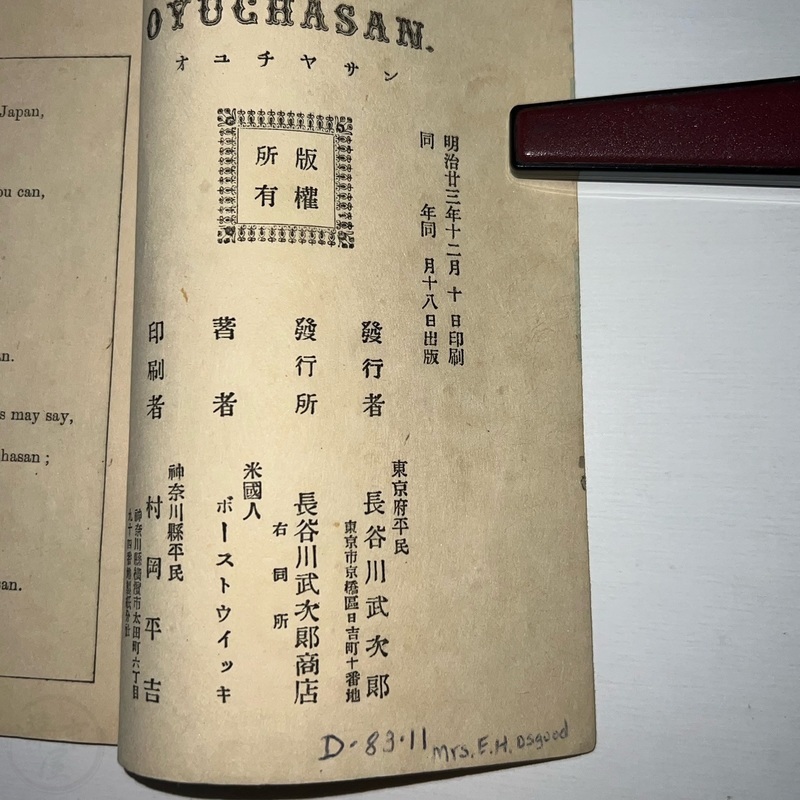 Japan,
ou can,
n.
s may say,
hasan ;
san.
OYUCHASAN.
オユチヤサン
版權
所有
明治廿三年十二月十日印刷
同年同月十八日出版
發行者
東京府平民
長谷川武次郎
東京市京橋區日吉町十番地
發行所
長谷川武次郎商店
右同所
著者
米國人
ボーストウイッキ
印刷者
神奈川縣平民
村岡平吉
神奈川縣橫濱市太田町六丁目
D-83-11 Mrs. E.H. Osgood